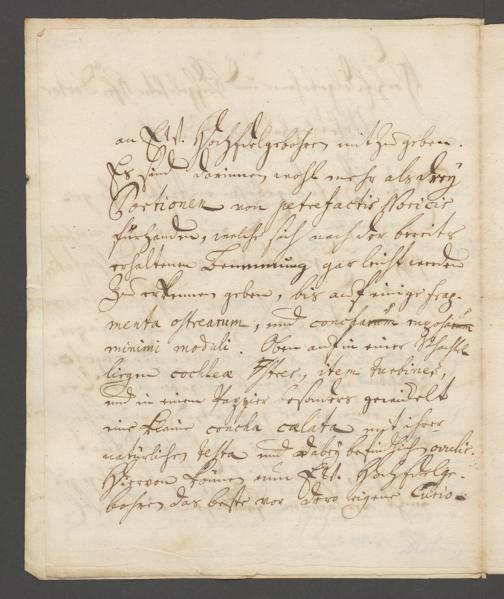 an Ew. HochEdelgebohren mit zu geben.
Es sind darinnen wohl mehr als drey
Portionen von petrefactis Noricis
fürhanden, welche sich nach der bereits
erhaltenen Benennung gar leicht werden
zu erkennen geben, bis auf einige frag-
menta ostrearum, und concharum rugosarum
minimi moduli. Oben auf in einer Schachtel
liegen cochleae, item turbines,
und in einem Pappier besonders gewickelt
eine kleine concha cælata mit ihrer
natürlichen testa und dabey befindlichen ovulis.
Hiervon können nun Ew. HochEdelge-
bohren das beste vor dero eigene Curio-